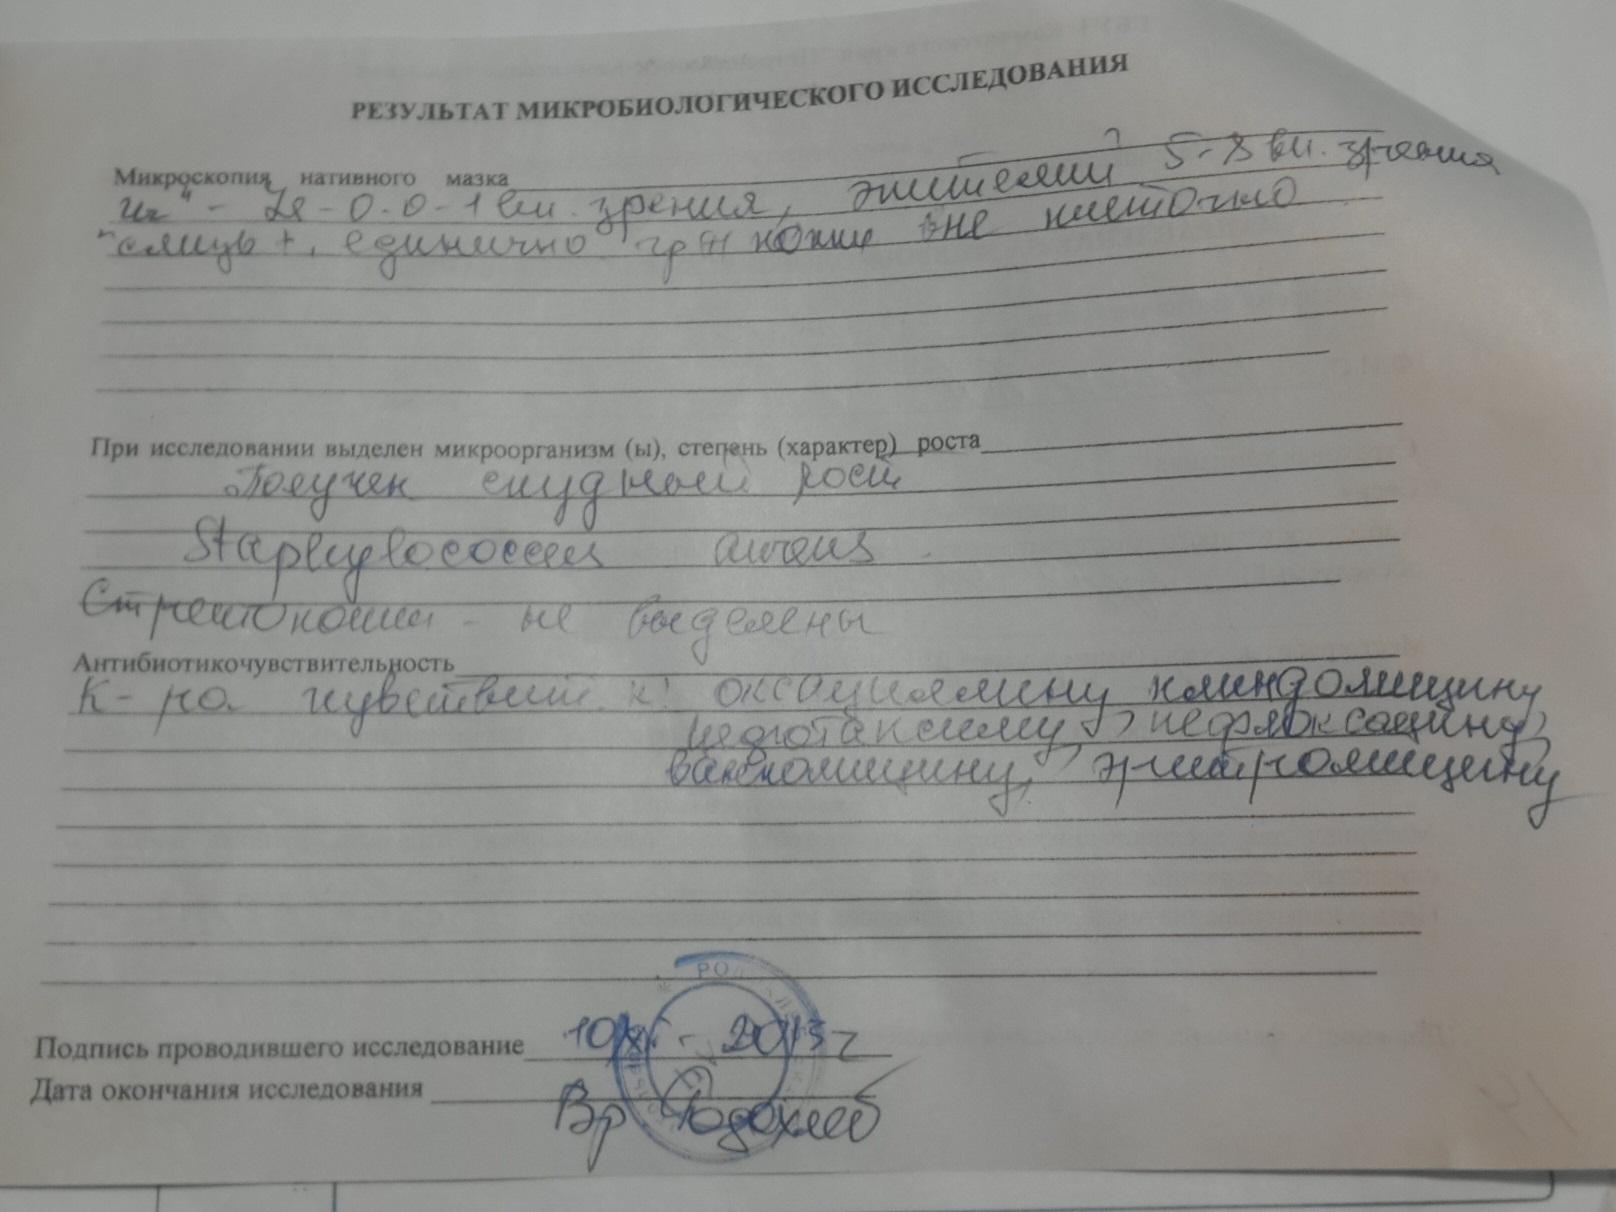 РЕЗУЛЬТАТ МИКРОБИОЛОГИЧЕСКОГО ИССЛЕДОВАНИЯ
Микроскопия нативного мазка
- 0-0-1 в п. зрения, эпителий 5-8 в п. зрения
слизь +, единично гр (+) кокки вне клеточно
При исследовании выделен микроорганизм (ы), степень (характер) роста
Получен скудный рост
Staphylococcus aureus.
Стрептококки - не выделены
Антибиотикочувствительность
К-ра чувствит. к: оксациллину клиндомицину
цефотаксиму, пефлоксацину,
ванкомицину, эритромицину
Подпись проводившего исследование
Дата окончания исследования
Вр